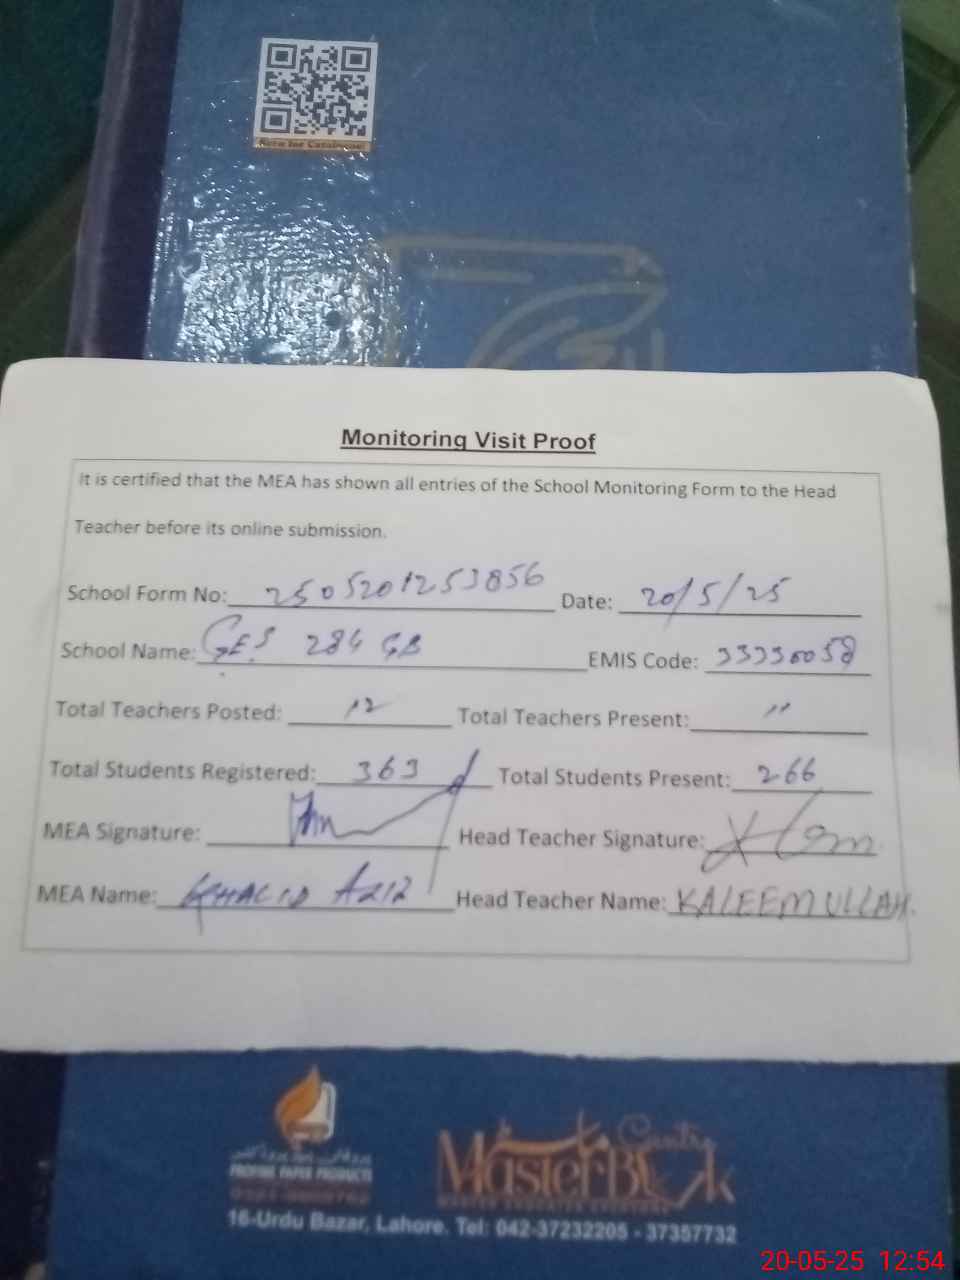 Monitoring Visit Proof
It is certified that the MEA has shown all entries of the School Monitoring Form to the Head
Teacher before its online submission.
School Form No: 2505201253856 Date: 20/5/25
School Name: GES 284 GB EMIS Code: 33330058
Total Teachers Posted: 12 Total Teachers Present: 11
Total Students Registered: 363 Total Students Present: 266
MEA Signature: Head Teacher Signature:
MEA Name: KHALID AZIZ Head Teacher Name: KALEEM ULLAH.
PROFINE PAPER PRODUCTS
MasterBook Centre
16-Urdu Bazar, Lahore. Tel: 042-37232205 - 37357732
20-05-25 12:54